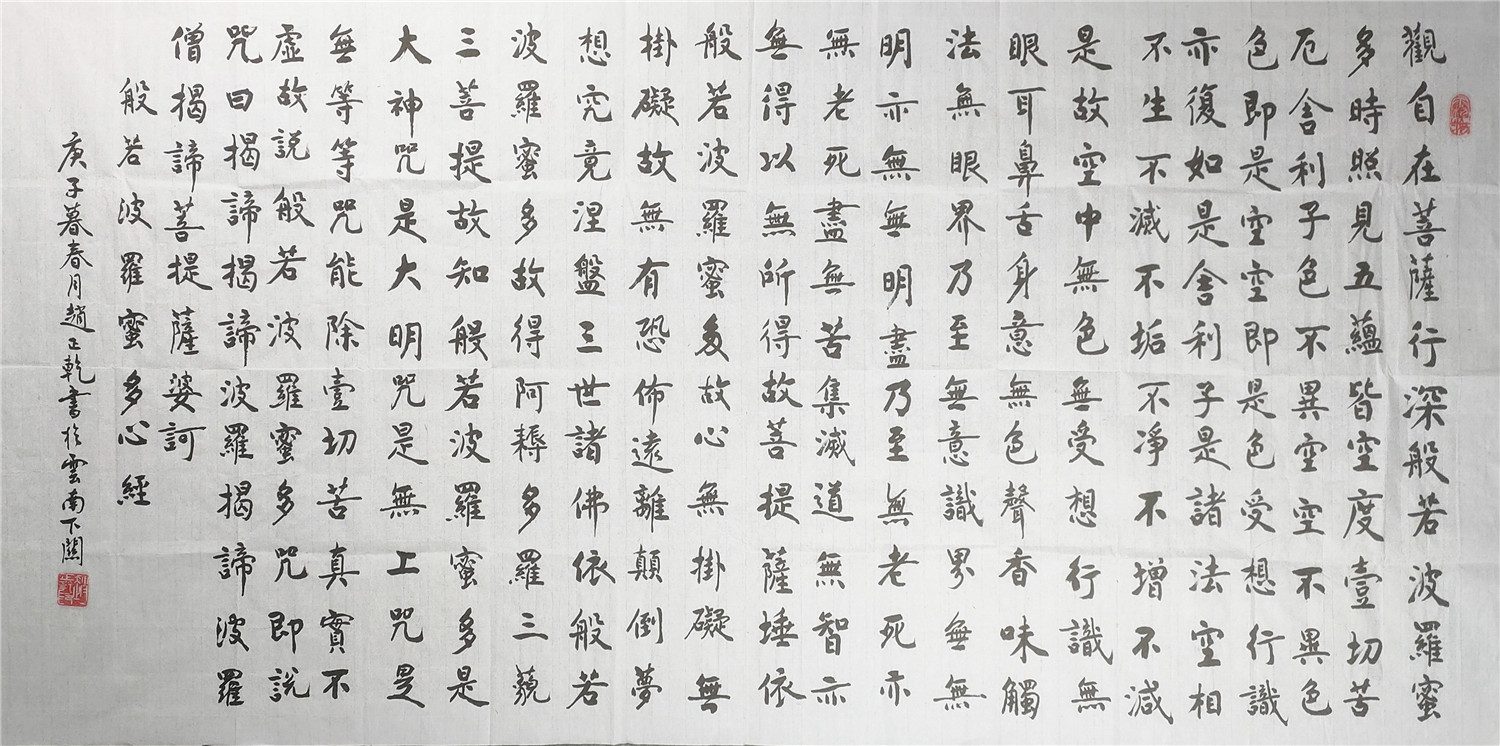 觀自在菩薩行深般若波羅蜜
多時照見五蘊皆空度壹切苦
厄舍利子色不異空空不異色
色即是空空即是色受想行識
亦復如是舍利子是諸法空相
不生不滅不垢不凈不增不減
是故空中無色無受想行識無
眼耳鼻舌身意無色聲香味觸
法無眼界乃至無意識界無無
明亦無無明盡乃至無老死亦
無老死盡無苦集滅道無智亦
無得以無所得故菩提薩埵依
般若波羅蜜多故心無掛礙無
掛礙故無有恐佈遠離顛倒夢
想究竟涅盤三世諸佛依般若
波羅蜜多故得阿耨多羅三藐
三菩提故知般若波羅蜜多是
大神咒是大明咒是無上咒是
無等等咒能除壹切苦真實不
虛故説般若波羅蜜多咒即説
咒曰揭諦揭諦波羅揭諦波羅
僧揭諦菩提薩婆訶
般若波羅蜜多心經
庚子暮春月趙正乾書於雲南下關